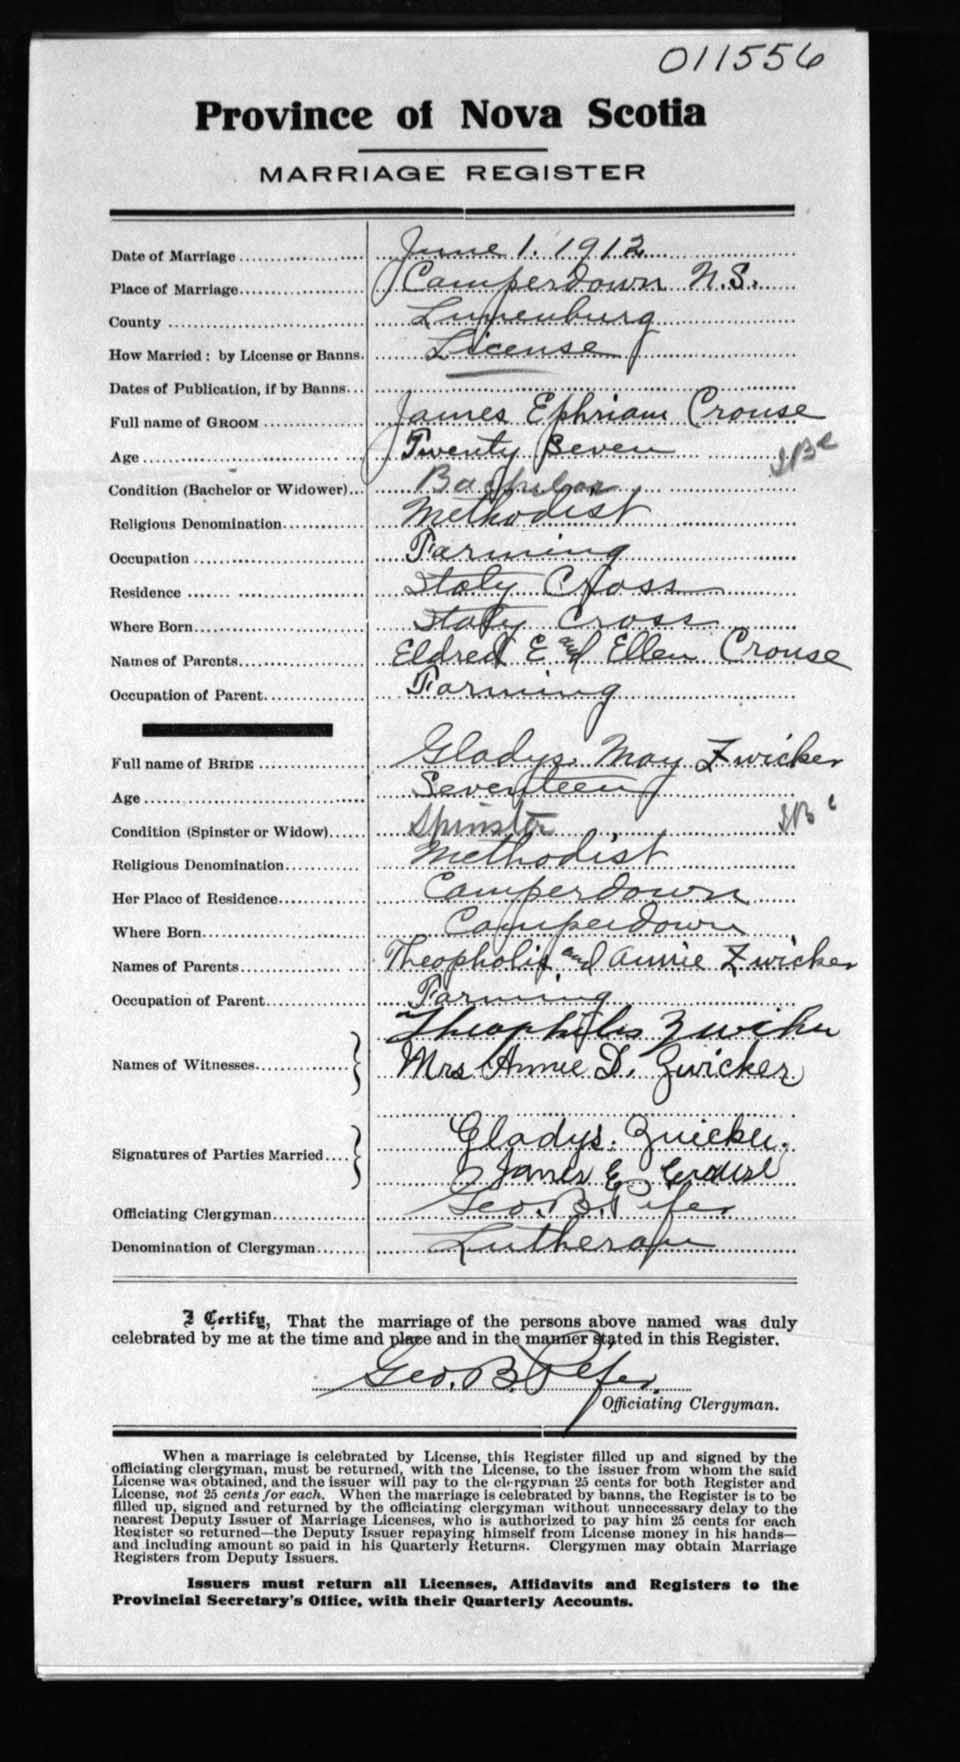 011556
Province of Nova Scotia
MARRIAGE REGISTER
Date of Marriage June 1. 1912
Place of Marriage Camperdown N.S.
County Lunenburg
How Married: by License or Banns. License
Dates of Publication, if by Banns
Full name of GROOM James Ephriam Crouse
Age Twenty Seven
Condition (Bachelor or Widower) Bachelor
Religious Denomination Methodist
Occupation Farming
Residence Italy Cross
Where Born Italy Cross
Names of Parents Eldred E and Ellen Crouse
Occupation of Parent Farming
Full name of BRIDE Gladys May Zwicker
Age Seventeen
Condition (Spinster or Widow) Spinster
Religious Denomination Methodist
Her Place of Residence Camperdown
Where Born Camperdown
Names of Parents Theopholis and Annie Zwicker
Occupation of Parent Farming
Names of Witnesses Theophilis Zwicker
Mrs Annie D. Zwicker
Signatures of Parties Married Gladys. Zwicker.
James E Crouse
Officiating Clergyman Geo. B. Pifer
Denomination of Clergyman Lutheran
I Certify, That the marriage of the persons above named was duly
celebrated by me at the time and place and in the manner stated in this Register.
Geo. B. Pifer.
Officiating Clergyman.
When a marriage is celebrated by License, this Register filled up and signed by the
officiating clergyman, must be returned, with the License, to the issuer from whom the said
License was obtained, and the issuer will pay to the clergyman 25 cents for both Register and
License, not 25 cents for each. When the marriage is celebrated by banns, the Register is to be
filled up, signed and returned by the officiating clergyman without unnecessary delay to the
nearest Deputy Issuer of Marriage Licenses, who is authorized to pay him 25 cents for each
Register so returned—the Deputy Issuer repaying himself from License money in his hands—
and including amount so paid in his Quarterly Returns. Clergymen may obtain Marriage
Registers from Deputy Issuers.
Issuers must return all Licenses, Affidavits and Registers to the
Provincial Secretary's Office, with their Quarterly Accounts.